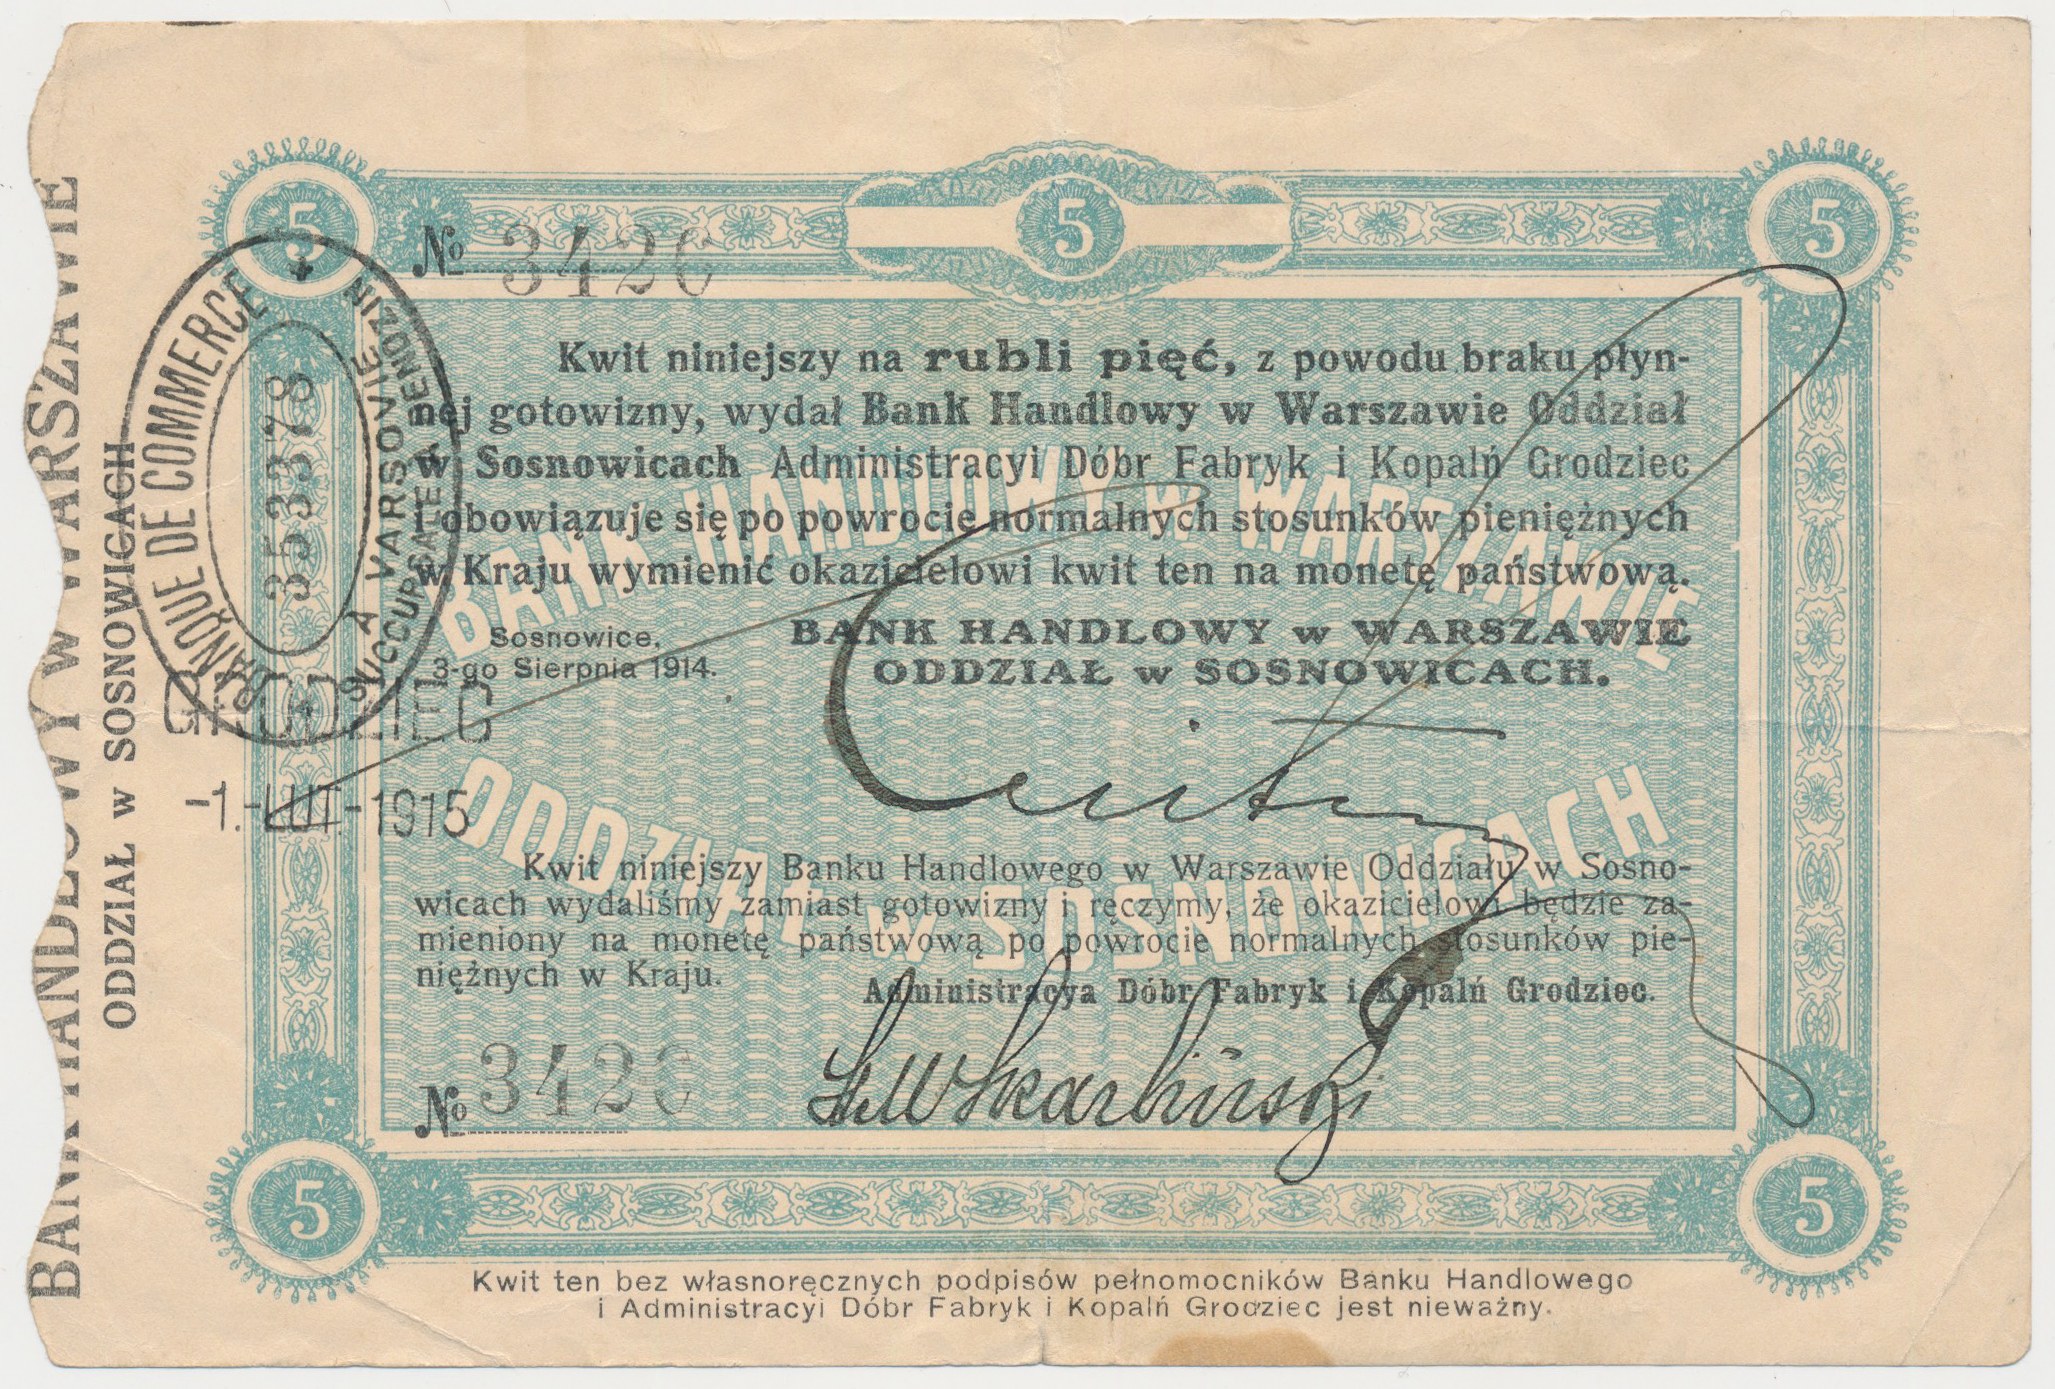 5 5 5
№ 3426
Kwit niniejszy na rubli pięć, z powodu braku płyn-
nej gotowizny, wydał Bank Handlowy w Warszawie Oddział
w Sosnowicach Administracyi Dóbr Fabryk i Kopalń Grodziec
i obowiązuje się po powrocie normalnych stosunków pieniężnych
w Kraju wymienić okazicielowi kwit ten na monetę państwową.
Sosnowice,
3-go Sierpnia 1914.
BANK HANDLOWY w WARSZAWIE
ODDZIAŁ w SOSNOWICACH.
BANK HANDLOWY w WARSZAWIE
ODDZIAŁ w SOSNOWICACH
Kwit niniejszy Banku Handlowego w Warszawie Oddziału w Sosno-
wicach wydaliśmy zamiast gotowizny i ręczymy, że okazicielowi będzie za-
mieniony na monetę państwową po powrocie normalnych stosunków pie-
niężnych w Kraju.
Administracya Dóbr Fabryk i Kopalń Grodziec.
№ 3426
Skarbiński
5 5
Kwit ten bez własnoręcznych podpisów pełnomocników Banku Handlowego
i Administracyi Dóbr Fabryk i Kopalń Grodziec jest nieważny.
BANK HANDLOWY w WARSZAWIE
ODDZIAŁ w SOSNOWICACH
BANQUE DE COMMERCE
A VARSOVIE
SUCCURSALE A BENDZIN
353378
GRODZIEC
-1.-LUT.-1915